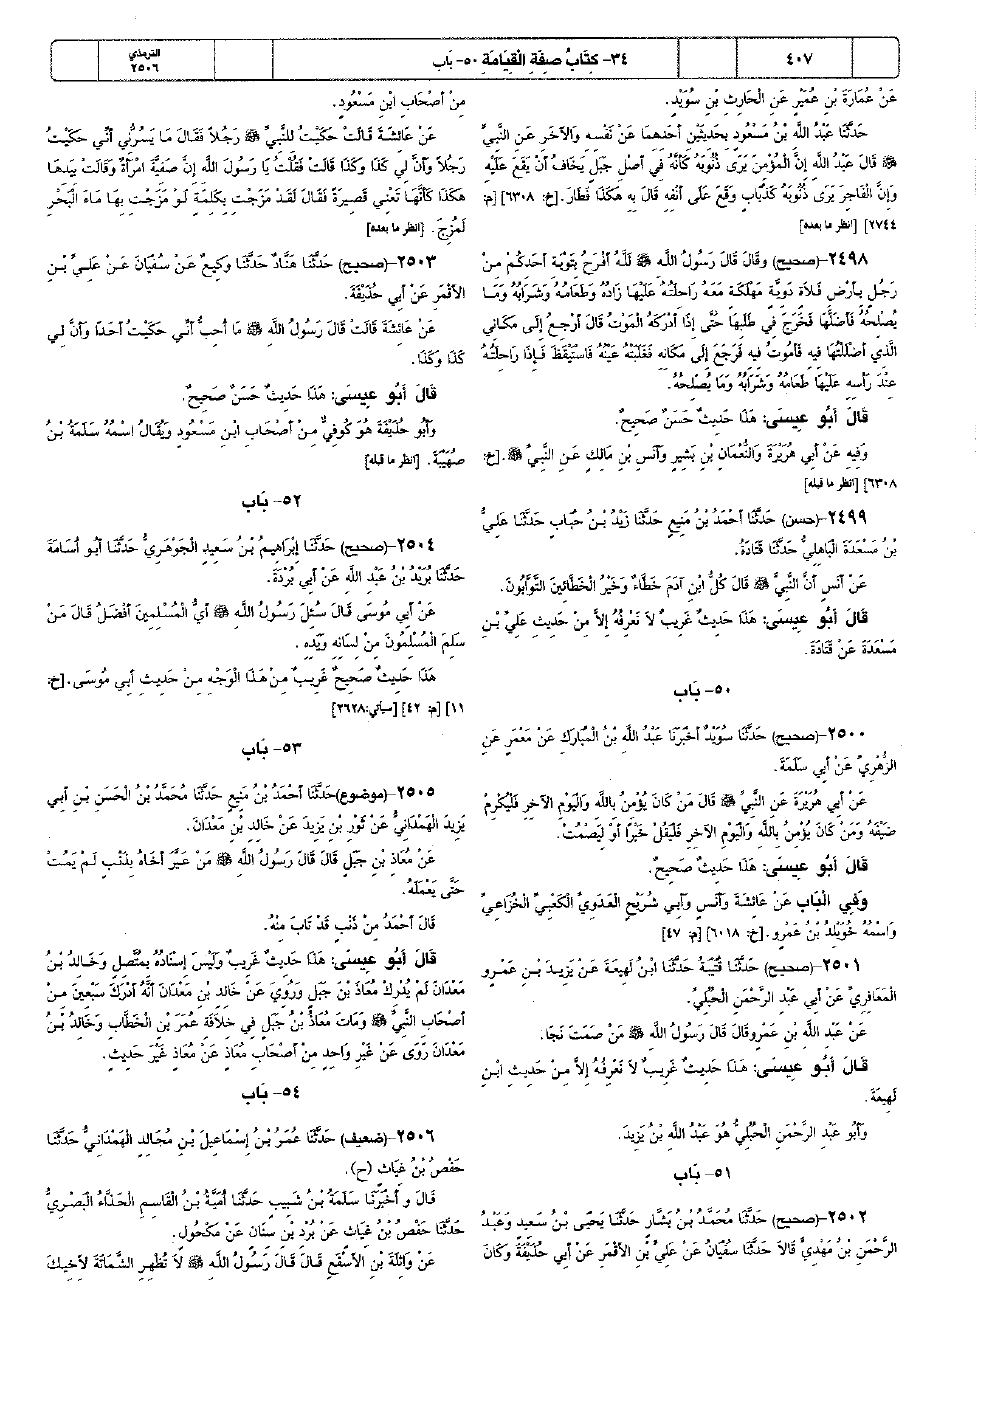 ٤٠٧
٣٤- كِتَابُ صِفَةِ الْقِيَامَةِ ٥٠- بَاب
الترمذي
٢٥٠٦
عَنْ عُمَارَةَ بْنِ عُمَيْرٍ عَنِ الْحَارِثِ بْنِ سُوَيْدٍ.
حَدَّثَنَا عَبْدُ اللَّهِ بْنُ مَسْعُودٍ بِحَدِيثَيْنِ أَحَدِهِمَا عَنْ نَفْسِهِ وَالآخَرِ عَنِ النَّبِيِّ
ﷺ قَالَ عَبْدُ اللَّهِ إِنَّ الْمُؤْمِنَ يَرَى ذُنُوبَهُ كَأَنَّهُ فِي أَصْلِ جَبَلٍ يَخَافُ أَنْ يَقَعَ عَلَيْهِ
وَإِنَّ الْفَاجِرَ يَرَى ذُنُوبَهُ كَذُبَابٍ وَقَعَ عَلَى أَنْفِهِ قَالَ بِهِ هَكَذَا فَطَارَ. [خ: ٦٣٠٨] [م:
٢٧٤٤] [انظر ما بعده]
٢٤٩٨-(صحيح) وقَالَ قَالَ رَسُولُ اللَّهِ ﷺ لَلَّهُ أَفْرَحُ بِتَوْبَةِ أَحَدِكُمْ مِنْ
رَجُلٍ بِأَرْضِ فَلاَةٍ دَوِيَّةٍ مَهْلَكَةٍ مَعَهُ رَاحِلَتُهُ عَلَيْهَا زَادُهُ وَطَعَامُهُ وَشَرَابُهُ وَمَا
يُصْلِحُهُ فَأَضَلَّهَا فَخَرَجَ فِي طَلَبِهَا حَتَّى إِذَا أَدْرَكَهُ الْمَوْتُ قَالَ أَرْجِعُ إِلَى مَكَانِي
الَّذِي أَضْلَلْتُهَا فِيهِ فَأَمُوتُ فِيهِ فَرَجَعَ إِلَى مَكَانِهِ فَغَلَبَتْهُ عَيْنُهُ فَاسْتَيْقَظَ فَإِذَا رَاحِلَتُهُ
عِنْدَ رَأْسِهِ عَلَيْهَا طَعَامُهُ وَشَرَابُهُ وَمَا يُصْلِحُهُ.
قَالَ أَبُو عِيسَى: هَذَا حَدِيثٌ حَسَنٌ صَحِيحٌ.
وَفِيهِ عَنْ أَبِي هُرَيْرَةَ وَالنُّعْمَانِ بْنِ بَشِيرٍ وَأَنَسِ بْنِ مَالِكٍ عَنِ النَّبِيِّ ﷺ. [خ:
٦٣٠٨] [انظر ما قبله]
٢٤٩٩-(حسن) حَدَّثَنَا أَحْمَدُ بْنُ مَنِيعٍ حَدَّثَنَا زَيْدُ بْنُ حُبَابٍ حَدَّثَنَا عَلِيُّ
بْنُ مَسْعَدَةَ الْبَاهِلِيُّ حَدَّثَنَا قَتَادَةُ.
عَنْ أَنَسٍ أَنَّ النَّبِيَّ ﷺ قَالَ كُلُّ ابْنِ آدَمَ خَطَّاءٌ وَخَيْرُ الْخَطَّائِينَ التَّوَّابُونَ.
قَالَ أَبُو عِيسَى: هَذَا حَدِيثٌ غَرِيبٌ لاَ نَعْرِفُهُ إِلاَّ مِنْ حَدِيثِ عَلِيِّ بْنِ
مَسْعَدَةَ عَنْ قَتَادَةَ.
٥٠- بَاب
٢٥٠٠-(صحيح) حَدَّثَنَا سُوَيْدٌ أَخْبَرَنَا عَبْدُ اللَّهِ بْنُ الْمُبَارَكِ عَنْ مَعْمَرٍ عَنِ
الزُّهْرِيِّ عَنْ أَبِي سَلَمَةَ.
عَنْ أَبِي هُرَيْرَةَ عَنِ النَّبِيِّ ﷺ قَالَ مَنْ كَانَ يُؤْمِنُ بِاللَّهِ وَالْيَوْمِ الآخِرِ فَلْيُكْرِمْ
ضَيْفَهُ وَمَنْ كَانَ يُؤْمِنُ بِاللَّهِ وَالْيَوْمِ الآخِرِ فَلْيَقُلْ خَيْرًا أَوْ لِيَصْمُتْ.
قَالَ أَبُو عِيسَى: هَذَا حَدِيثٌ صَحِيحٌ.
وَفِي الْبَاب عَنْ عَائِشَةَ وَأَنَسٍ وَأَبِي شُرَيْحٍ الْعَدَوِيِّ الْكَعْبِيِّ الْخُزَاعِيِّ
وَاسْمُهُ خُوَيْلِدُ بْنُ عَمْرٍو. [خ: ٦٠١٨] [م: ٤٧]
٢٥٠١-(صحيح) حَدَّثَنَا قُتَيْبَةُ حَدَّثَنَا ابْنُ لَهِيعَةَ عَنْ يَزِيدَ بْنِ عَمْرٍو
الْمَعَافِرِيِّ عَنْ أَبِي عَبْدِ الرَّحْمَنِ الْحُبُلِيِّ.
عَنْ عَبْدِ اللَّهِ بْنِ عَمْرٍو قَالَ قَالَ رَسُولُ اللَّهِ ﷺ مَنْ صَمَتَ نَجَا.
قَالَ أَبُو عِيسَى: هَذَا حَدِيثٌ غَرِيبٌ لاَ نَعْرِفُهُ إِلاَّ مِنْ حَدِيثِ ابْنِ
لَهِيعَةَ.
وَأَبُو عَبْدِ الرَّحْمَنِ الْحُبُلِيُّ هُوَ عَبْدُ اللَّهِ بْنُ يَزِيدَ.
٥١- بَاب
٢٥٠٢-(صحيح) حَدَّثَنَا مُحَمَّدُ بْنُ بَشَّارٍ حَدَّثَنَا يَحْيَى بْنُ سَعِيدٍ وَعَبْدُ
الرَّحْمَنِ بْنُ مَهْدِيٍّ قَالاَ حَدَّثَنَا سُفْيَانُ عَنْ عَلِيِّ بْنِ الأَقْمَرِ عَنْ أَبِي حُذَيْفَةَ وَكَانَ
مِنْ أَصْحَابِ ابْنِ مَسْعُودٍ.
عَنْ عَائِشَةَ قَالَتْ حَكَيْتُ لِلنَّبِيِّ ﷺ رَجُلاً فَقَالَ مَا يَسُرُّنِي أَنِّي حَكَيْتُ
رَجُلاً وَأَنَّ لِي كَذَا وَكَذَا قَالَتْ فَقُلْتُ يَا رَسُولَ اللَّهِ إِنَّ صَفِيَّةَ امْرَأَةٌ وَقَالَتْ بِيَدِهَا
هَكَذَا كَأَنَّهَا تَعْنِي قَصِيرَةً فَقَالَ لَقَدْ مَزَجْتِ بِكَلِمَةٍ لَوْ مَزَجْتِ بِهَا مَاءَ الْبَحْرِ
لَمُزِجَ. [انظر ما بعده]
٢٥٠٣-(صحيح) حَدَّثَنَا هَنَّادٌ حَدَّثَنَا وَكِيعٌ عَنْ سُفْيَانَ عَنْ عَلِيِّ بْنِ
الأَقْمَرِ عَنْ أَبِي حُذَيْفَةَ.
عَنْ عَائِشَةَ قَالَتْ قَالَ رَسُولُ اللَّهِ ﷺ مَا أُحِبُّ أَنِّي حَكَيْتُ أَحَدًا وَأَنَّ لِي
كَذَا وَكَذَا.
قَالَ أَبُو عِيسَى: هَذَا حَدِيثٌ حَسَنٌ صَحِيحٌ.
وَأَبُو حُذَيْفَةَ هُوَ كُوفِيٌّ مِنْ أَصْحَابِ ابْنِ مَسْعُودٍ وَيُقَالُ اسْمُهُ سَلَمَةُ بْنُ
صُهَيْبَةَ. [انظر ما قبله]
٥٢- بَاب
٢٥٠٤-(صحيح) حَدَّثَنَا إِبْرَاهِيمُ بْنُ سَعِيدٍ الْجَوْهَرِيُّ حَدَّثَنَا أَبُو أُسَامَةَ
حَدَّثَنَا بُرَيْدُ بْنُ عَبْدِ اللَّهِ عَنْ أَبِي بُرْدَةَ.
عَنْ أَبِي مُوسَى قَالَ سُئِلَ رَسُولُ اللَّهِ ﷺ أَيُّ الْمُسْلِمِينَ أَفْضَلُ قَالَ مَنْ
سَلِمَ الْمُسْلِمُونَ مِنْ لِسَانِهِ وَيَدِهِ.
هَذَا حَدِيثٌ صَحِيحٌ غَرِيبٌ مِنْ هَذَا الْوَجْهِ مِنْ حَدِيثِ أَبِي مُوسَى. [خ:
١١] [م: ٤٢] [سيأتي: ٢٦٢٨]
٥٣- بَاب
٢٥٠٥-(موضوع) حَدَّثَنَا أَحْمَدُ بْنُ مَنِيعٍ حَدَّثَنَا مُحَمَّدُ بْنُ الْحَسَنِ بْنِ أَبِي
يَزِيدَ الْهَمْدَانِيُّ عَنْ ثَوْرِ بْنِ يَزِيدَ عَنْ خَالِدِ بْنِ مَعْدَانَ.
عَنْ مُعَاذِ بْنِ جَبَلٍ قَالَ قَالَ رَسُولُ اللَّهِ ﷺ مَنْ عَيَّرَ أَخَاهُ بِذَنْبٍ لَمْ يَمُتْ
حَتَّى يَعْمَلَهُ.
قَالَ أَحْمَدُ مِنْ ذَنْبٍ قَدْ تَابَ مِنْهُ.
قَالَ أَبُو عِيسَى: هَذَا حَدِيثٌ غَرِيبٌ وَلَيْسَ إِسْنَادُهُ بِمُتَّصِلٍ وَخَالِدُ بْنُ
مَعْدَانَ لَمْ يُدْرِكْ مُعَاذَ بْنَ جَبَلٍ وَرُوِيَ عَنْ خَالِدِ بْنِ مَعْدَانَ أَنَّهُ أَدْرَكَ سَبْعِينَ مِنْ
أَصْحَابِ النَّبِيِّ ﷺ وَمَاتَ مُعَاذُ بْنُ جَبَلٍ فِي خِلاَفَةِ عُمَرَ بْنِ الْخَطَّابِ وَخَالِدُ بْنُ
مَعْدَانَ رَوَى عَنْ غَيْرِ وَاحِدٍ مِنْ أَصْحَابِ مُعَاذٍ عَنْ مُعَاذٍ غَيْرَ حَدِيثٍ.
٥٤- بَاب
٢٥٠٦-(ضعيف) حَدَّثَنَا عُمَرُ بْنُ إِسْمَاعِيلَ بْنِ مُجَالِدٍ الْهَمْدَانِيُّ حَدَّثَنَا
حَفْصُ بْنُ غِيَاثٍ (ح).
قَالَ و أَخْبَرَنَا سَلَمَةُ بْنُ شَبِيبٍ حَدَّثَنَا أُمَيَّةُ بْنُ الْقَاسِمِ الْحَذَّاءُ الْبَصْرِيُّ
حَدَّثَنَا حَفْصُ بْنُ غِيَاثٍ عَنْ بُرْدِ بْنِ سِنَانٍ عَنْ مَكْحُولٍ.
عَنْ وَاثِلَةَ بْنِ الأَسْقَعِ قَالَ قَالَ رَسُولُ اللَّهِ ﷺ لاَ تُظْهِرِ الشَّمَاتَةَ لأَخِيكَ